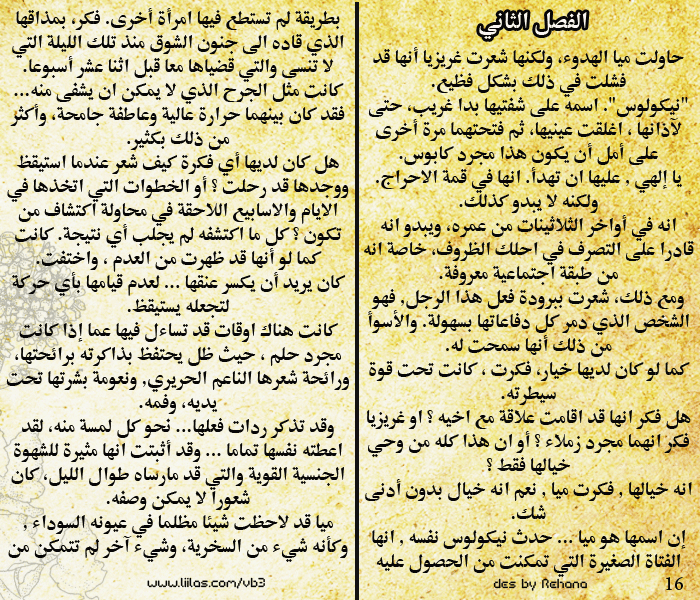 الفصل الثاني
حاولت ميا الهدوء، ولكنها شعرت غريزيا أنها قد
فشلت في ذلك بشكل فظيع.
"نيكولوس". اسمه على شفتيها بدا غريب، حتى
لاذانها ، اغلقت عينيها، ثم فتحتهما مرة أخرى
على أمل أن يكون هذا مجرد كابوس.
يا إلهي , عليها ان تهدأ. انها في قمة الاحراج.
ولكنه لا يبدو كذلك.
انه في أواخر الثلاثينات من عمره، ويبدو انه
قادرا على التصرف في احلك الظروف، خاصة انه
من طبقة اجتماعية معروفة.
ومع ذلك، شعرت ببرودة فعل هذا الرجل, فهو
الشخص الذي دمر كل دفاعاتها بسهولة. والأسوأ
من ذلك أنها سمحت له.
كما لو كان لديها خيار، فكرت ، كانت تحت قوة
سيطرته.
هل فكر انها قد اقامت علاقة مع اخيه ؟ او غريزيا
فكر انهما مجرد زملاء ؟ أو ان هذا كله من وحي
خيالها فقط ؟
انه خيالها , فكرت ميا , نعم انه خيال بدون أدنى
شك.
إن اسمها هو ميا ... حدث نيكولوس نفسه , انها
الفتاة الصغيرة التي تمكنت من الحصول عليه
des by Rehana
16
بطريقة لم تستطع فيها امرأة أخرى. فكر، بمذاقها
الذي قاده الى جنون الشوق منذ تلك الليلة التي
لا تنسى والتي قضياها معا قبل اثنا عشر أسبوعا.
كانت مثل الجرح الذي لا يمكن ان يشفى منه...
فقد كان بينهما حرارة عالية وعاطفة جامحة، وأكثر
من ذلك بكثير.
هل كان لديها أي فكرة كيف شعر عندما استيقظ
ووجدها قد رحلت ؟ أو الخطوات التي اتخذها في
الايام والاسابيع اللاحقة في محاولة اكتشاف من
تكون ؟ كل ما اكتشفه لم يجلب أي نتيجة. كانت
كما لو أنها قد ظهرت من العدم ، واختفت.
كان يريد أن يكسر عنقها ... لعدم قيامها بأي حركة
لتجعله يستيقظ.
كانت هناك اوقات قد تساءل فيها عما إذا كانت
مجرد حلم ، حيث ظل يحتفظ بذاكرته برائحتها،
ورائحة شعرها الناعم الحريري, ونعومة بشرتها تحت
يديه، وفمه.
وقد تذكر ردات فعلها... نحو كل لمسة منه، لقد
اعطته نفسها تماما ... وقد أثبتت انها مثيرة للشهوة
الجنسية القوية والتي قد مارساه طوال الليل، كان
شعورا لا يمكن وصفه.
ميا قد لاحظت شيئا مظلما في عيونه السوداء ,
وكأنه شيء من السخرية، وشيء آخر لم تتمكن من
www.liilas.com/vb3